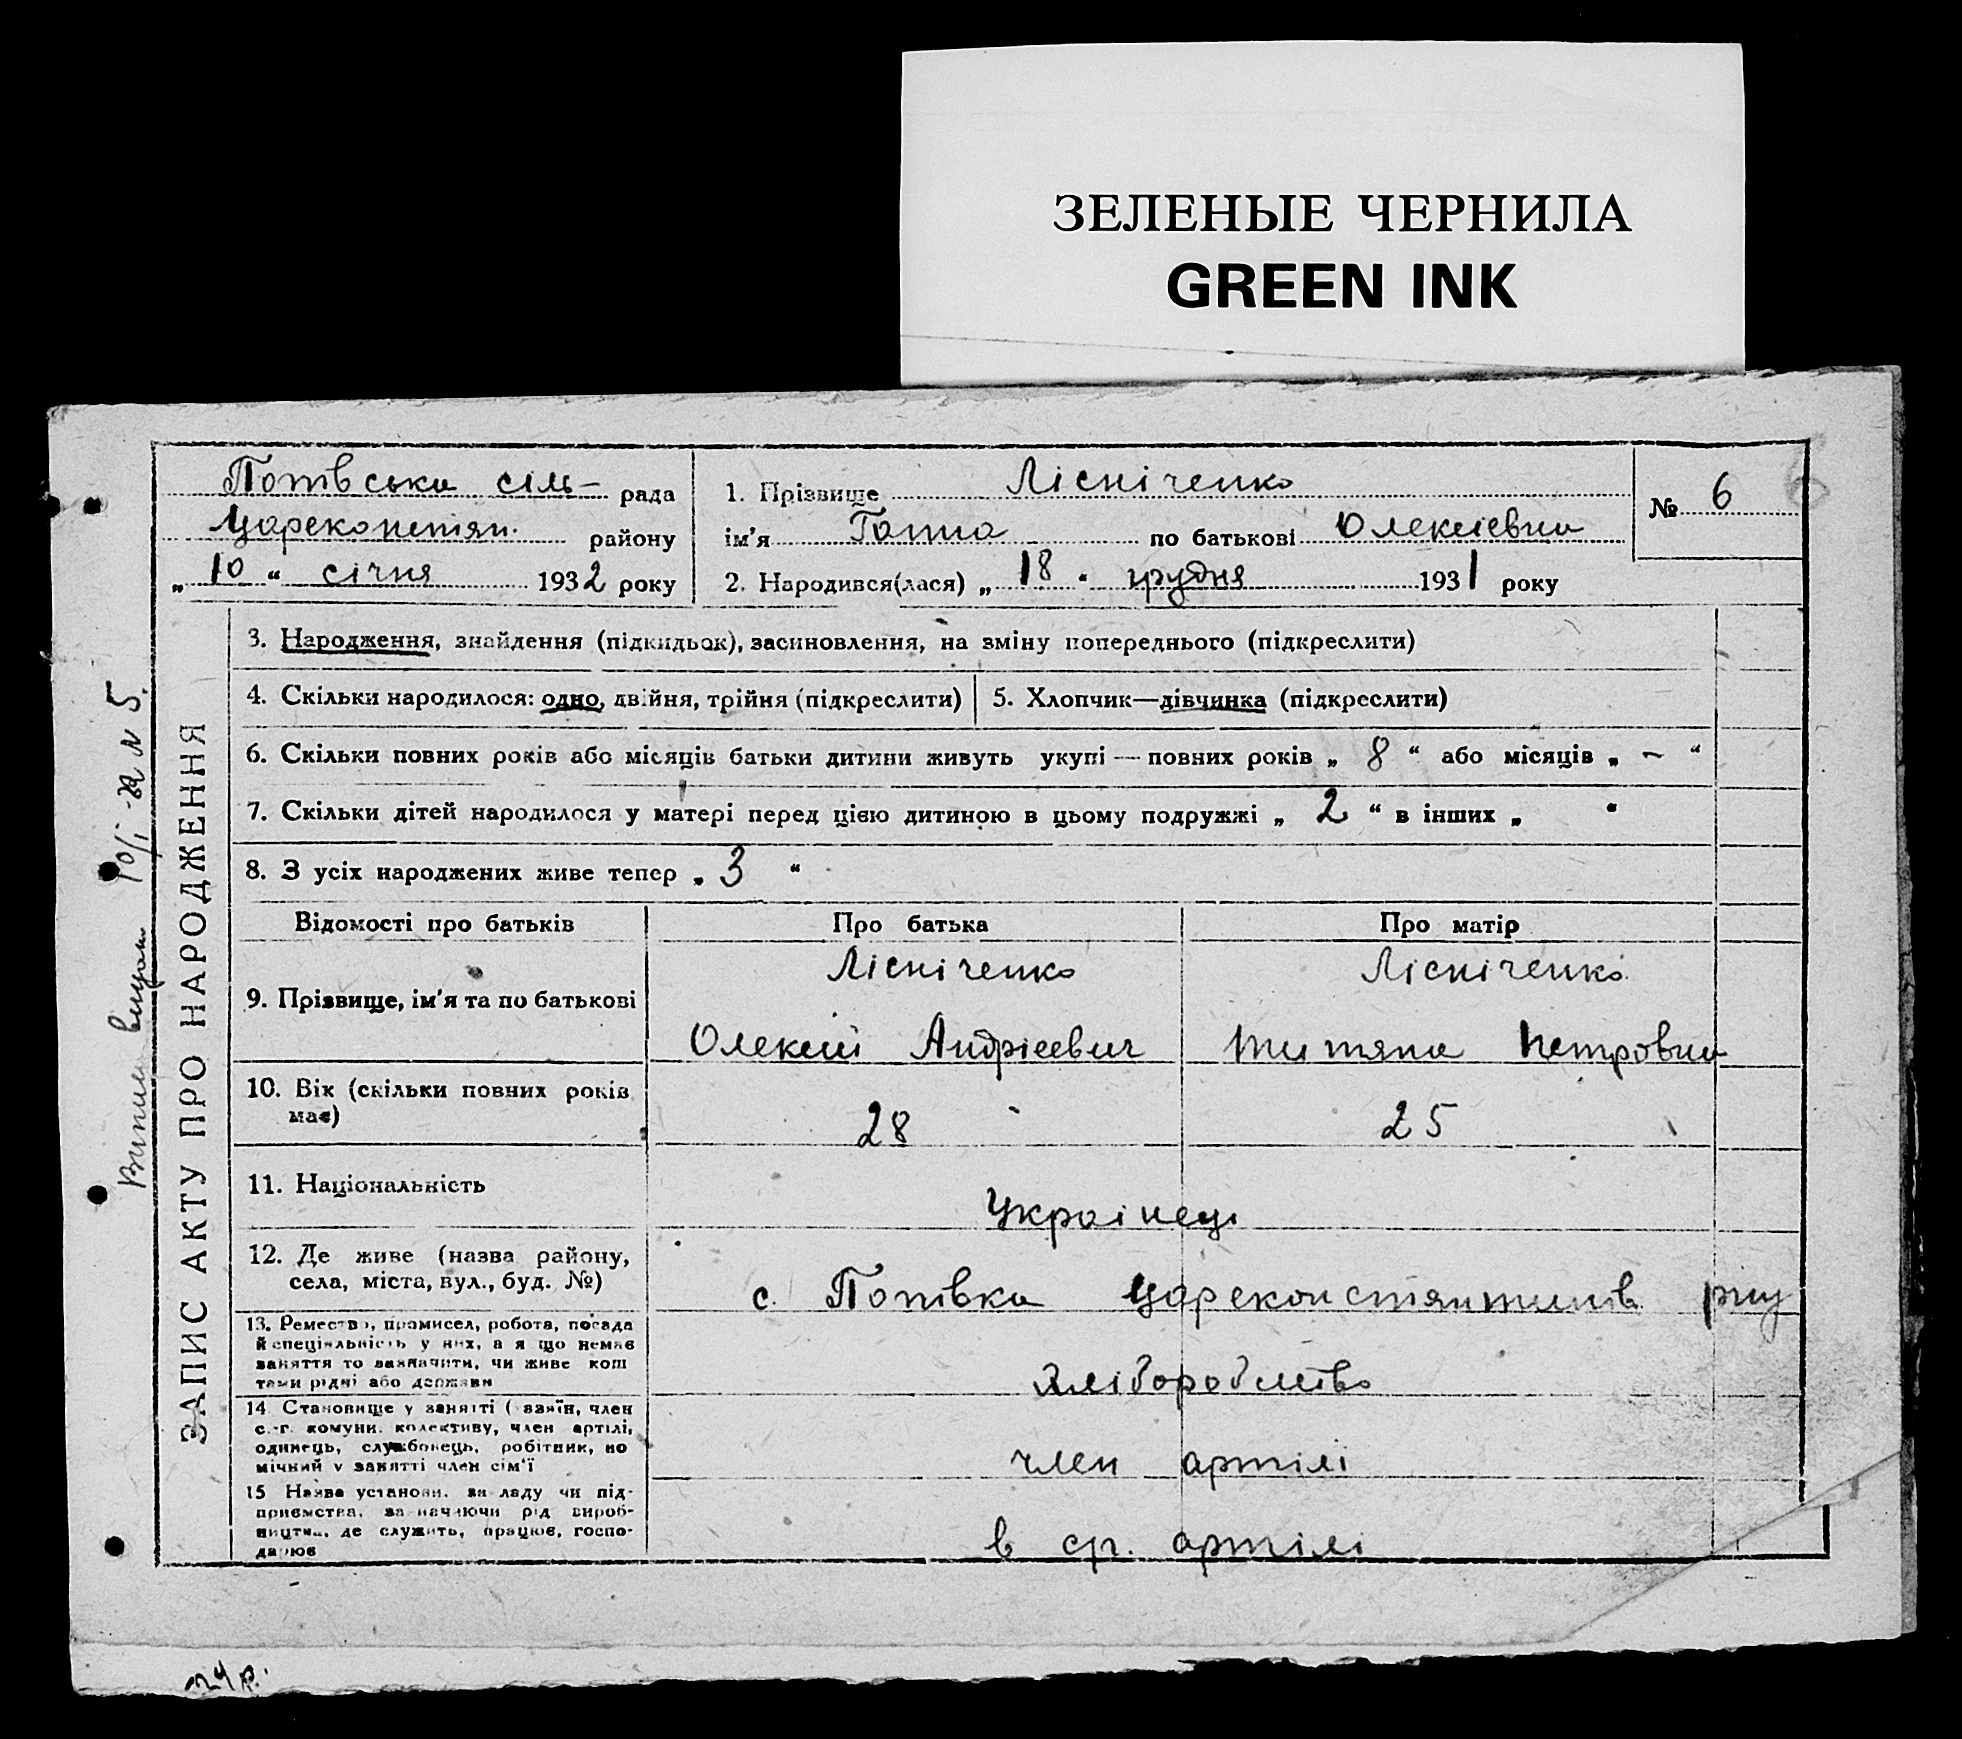 ЗЕЛЕНЫЕ ЧЕРНИЛА
GREEN INK
Попівська сіль- рада
Цареконстян. району
„ 10 “ січня 1932 року
1. Прізвище Лісніченко
ім'я Ганна по батькові Олексіевна
2. Народився(лася) „ 18 “ грудня 1931 року
№ 6
ЗАПИС АКТУ ПРО НАРОДЖЕННЯ
10/I-32 N 5.
3. Народження, знайдення (підкидьок), засиновлення, на зміну попереднього (підкреслити)
4. Скільки народилося: одно, двійня, трійня (підкреслити)
5. Хлопчик—дівчинка (підкреслити)
6. Скільки повних років або місяців батьки дитини живуть укупі — повних років „ 8 “ або місяців „ – “
7. Скільки дітей народилося у матері перед цією дитиною в цьому подружжі „ 2 “ в інших „ “
8. З усіх народжених живе тепер „ 3 “
Відомості про батьків
Про батька
Про матір
9. Прізвище, ім'я та по батькові
Лісніченко
Олексій Андрієвич
Лісніченко
Титяна Петровна
10. Вік (скільки повних років
має)
28
25
11. Національність
Украінець
12. Де живе (назва району,
села, міста, вул., буд. №)
с. Попівка Цареконстянтинів. рну
13. Ремество, промисел, робота, посада
й спеціяльність у них, а якщо немає
заняття то зазначити, чи живе кош
тами рідні або держави
хліборобство
14. Становище у занятті (хазяїн, член
с.-г. комуни, колективу, член артілі,
одинець, службовець, робітник, по
мічний у занятті член сім'ї
член артілі
15 Назва установи, закладу чи під-
приємства, зазначаючи рід вироб-
ництва, де служить, працює, госпо-
дарює
в ср. артілі